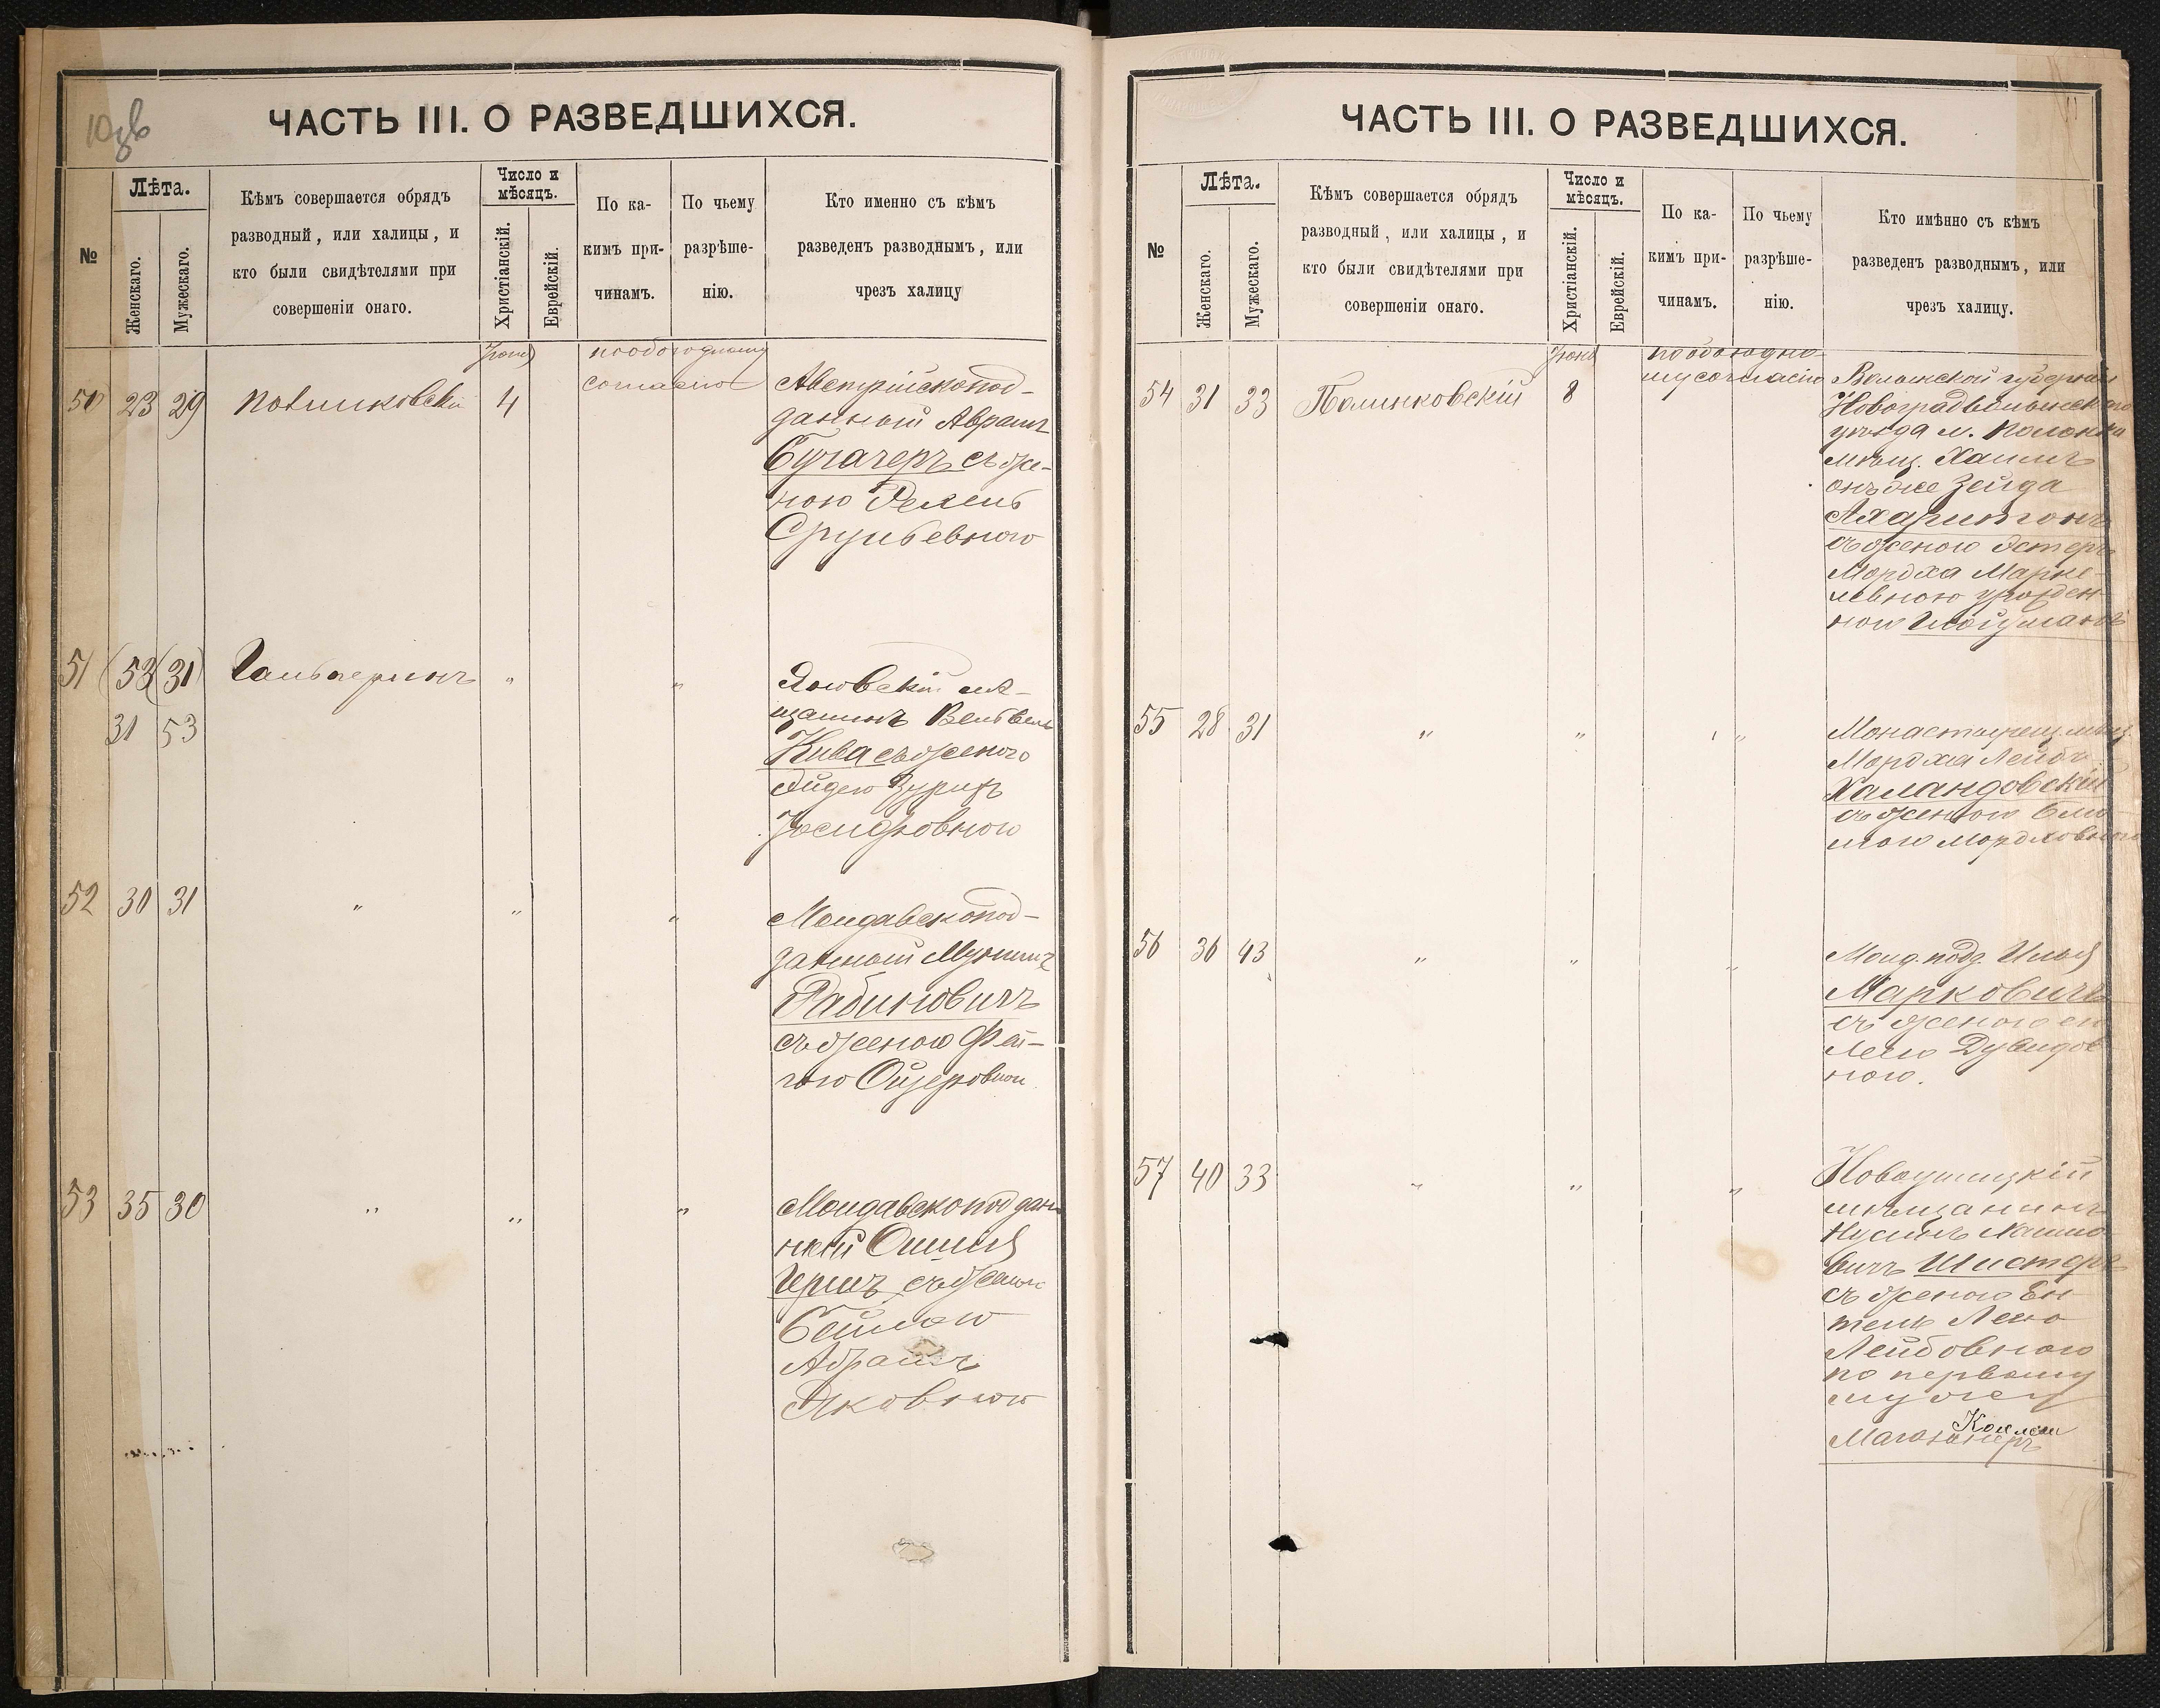 10 об
ЧАСТЬ III. О РАЗВЕДШИХСЯ.
№
Лѣта.
Женскаго.
Мужескаго.
Кѣмъ совершается обрядъ
разводный, или халицы, и
кто были свидѣтелями при
совершеніи онаго.
Число и
мѣсяцъ.
Христіанскій.
Еврейскій.
По ка-
кимъ при-
чинамъ.
По чьему
разрѣше-
нію.
Кто именно съ кѣмъ
разведенъ разводнымъ, или
чрезъ халицу
Іюнь
по обоюдному
согласію
50 23 29 4
Австрійскопод-
данный Аврамъ
Бугачеръ съ же-
ною
Срульевною
51 (53 (31) Гальперинъ " "
31 53
Яновскій мѣ-
щанинъ Вельвель
Кива съ женою
Іосифовною
52 30 31 " " "
Молдавскопод-
данный
Рабиновичъ
съ женою Фей-
гою Ойзеровною
53 35 30 " " "
Молдавскоподдан
ный
Гершъ съ женою
Бейлою
Абрамъ
Яковною
11
ЧАСТЬ III. О РАЗВЕДШИХСЯ.
№
Лѣта.
Женскаго.
Мужескаго.
Кѣмъ совершается обрядъ
разводный, или халицы, и
кто были свидѣтелями при
совершеніи онаго.
Число и
мѣсяцъ.
Христіанскій.
Еврейскій.
По ка-
кимъ при-
чинамъ.
По чьему
разрѣше-
нію.
Кто имѣнно съ кѣмъ
разведенъ разводнымъ, или
чрезъ халицу.
Іюнь
по обоюдно-
му согласію
54 31 33 Полинковскій 8
Волынской губерніи
Новоградволынскаго
уѣзда м. Полонна
мѣщ. Хаимъ
онъ же Зейда
Ахаритонъ
съ женою Эстеръ
Мордха Марке-
левною урожден
ною
55 28 31 " " "
мѣщ.
Мордха Лейбъ
Халандовскій
съ женою
Мордховною
56 36 43 " " "
Молд. подд. Илья
Марковичъ
съ женою
Дувидов
ною.
57 40 33 " " "
Новоушицкій
мѣщанинъ
Нусинъ
вичъ Шистеръ
съ женою Ен
тель Леею
Лейбовною
по первому
мужу